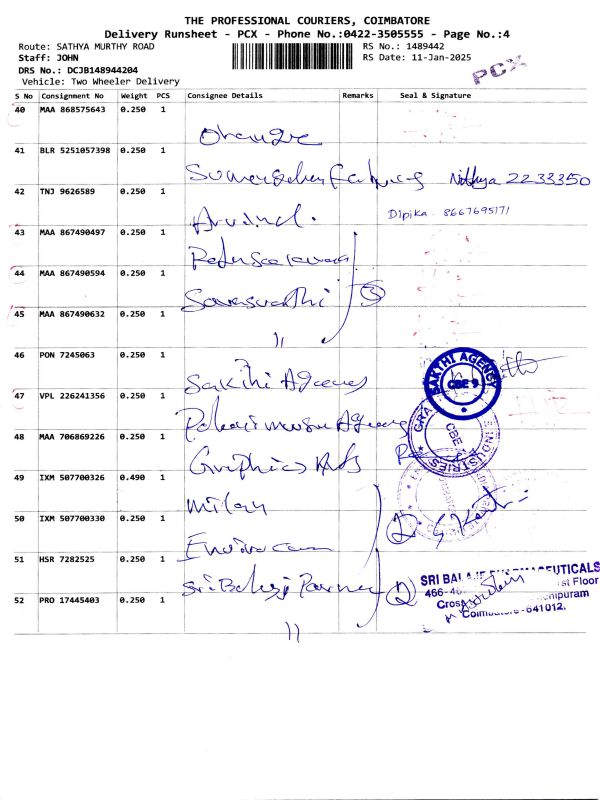 THE PROFESSIONAL COURIERS, COIMBATORE
Delivery Runsheet - PCX - Phone No.:0422-3505555 - Page No.:4
Route: SATHYA MURTHY ROAD
RS No.: 1489442
Staff: JOHN
RS Date: 11-Jan-2025
DRS No.: DCJB148944204
Vehicle: Two Wheeler Delivery
PCX
S No Consignment No Weight PCS Consignee Details Remarks Seal & Signature
40 MAA 868575643 0.250 1
41 BLR 5251057398 0.250 1
Nithya 2233350
42 TNJ 9626589 0.250 1
Arvind.
Dipika - 8667695171
43 MAA 867490497 0.250 1
44 MAA 867490594 0.250 1
Saraswathi
3
45 MAA 867490632 0.250 1
46 PON 7245063 0.250 1
Sakthi Agency
SAKTHI AGENCY
CBE 9
47 VPL 226241356 0.250 1
CBE
INDUSTRIES
48 MAA 706869226 0.250 1
Graphics Arts
49 IXM 507700326 0.490 1
Milan
50 IXM 507700330 0.250 1
51 HSR 7282525 0.250 1
Sri Balaji
SRI BALAJI PHARMACEUTICALS
1st Floor
52 PRO 17445403 0.250 1
Cross
Coimbatore-641012.